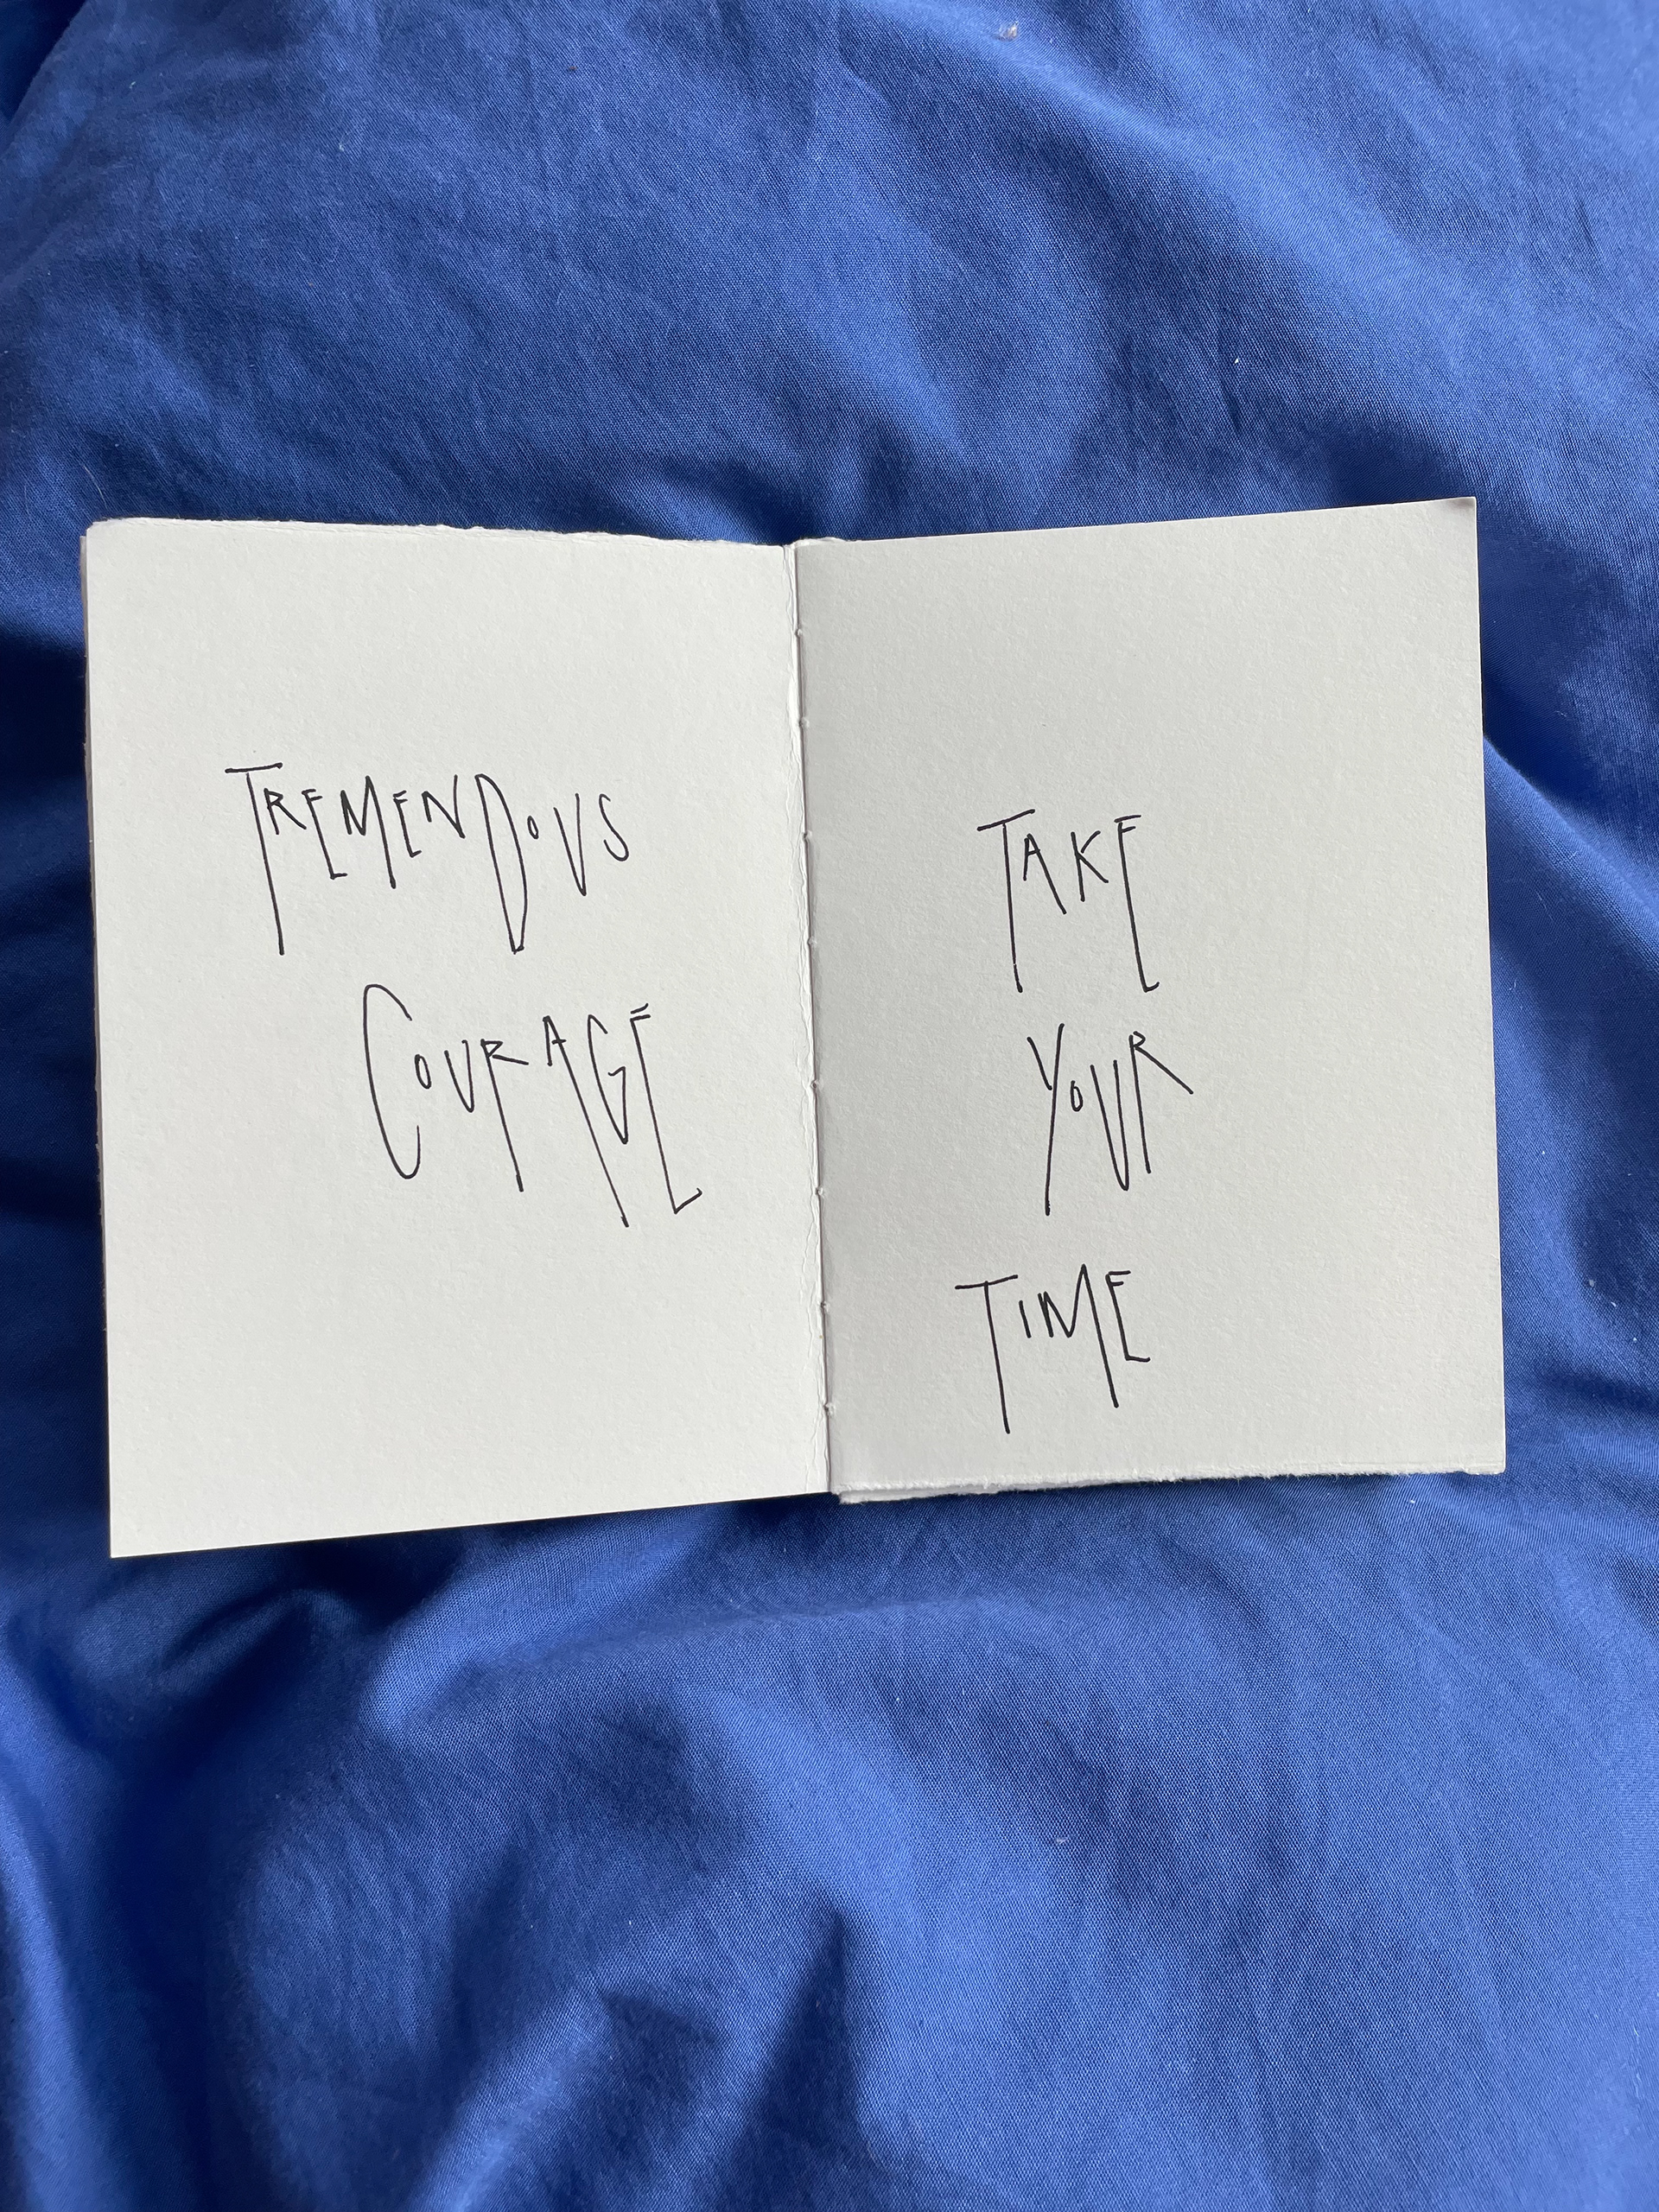 TREMENDOUS
COURAGE
TAKE
YOUR
TIME